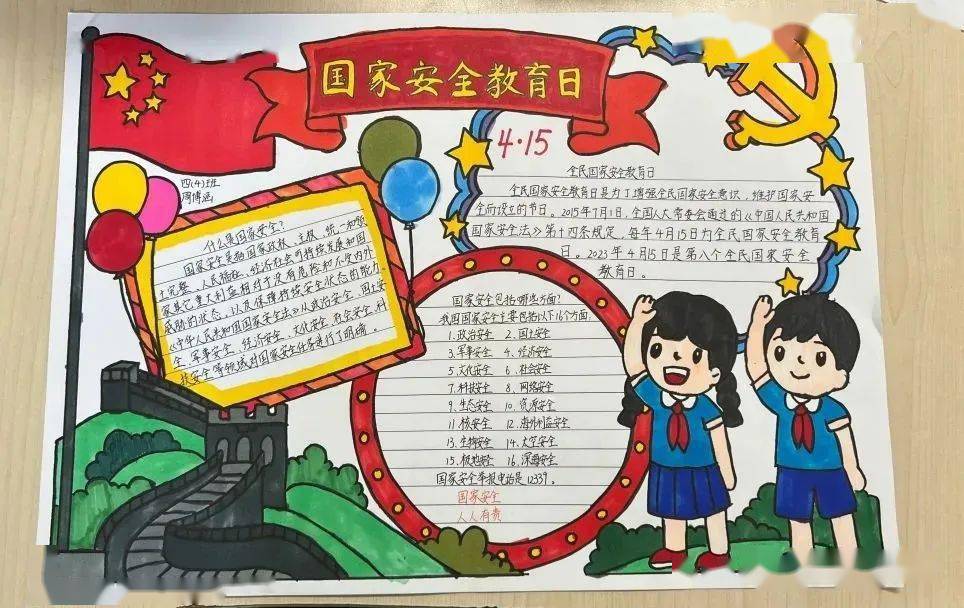 国家安全教育日
4·15
四(4)班
周博涵
什么是国家安全?
国家安全是指国家政权、主权、统一和领
土完整、人民福祉、经济社会可持续发展和国
家其它重大利益相对于没有危险和不受内外
威胁的状态,以及保障持续安全状态的能力。
《中华人民共和国国家安全法》从政治安全、国土安
全、军事安全、经济安全、文化安全、社会安全、科
技安全等领域对国家安全任务进行了明确。
全民国家安全教育日
全民国家安全教育日是为了增强全民国家安全意识,维护国家安
全而设立的节日。2015年7月1日,全国人大常委会通过的《中国人民共和国
国家安全法》第十四条规定,每年4月15日为全民国家安全教育
日。2023年4月15日是第八个全民国家安全
教育日。
国家安全包括哪些方面?
我国国家安全主要包括以下16个方面:
1、政治安全 2、国土安全
3、军事安全 4、经济安全
5、文化安全 6、社会安全
7、科技安全 8、网络安全
9、生态安全 10、资源安全
11、核安全 12、海外利益安全
13、生物安全 14、太空安全
15、极地安全 16、深海安全
国家安全举报电话是12339。
国家安全
人人有责